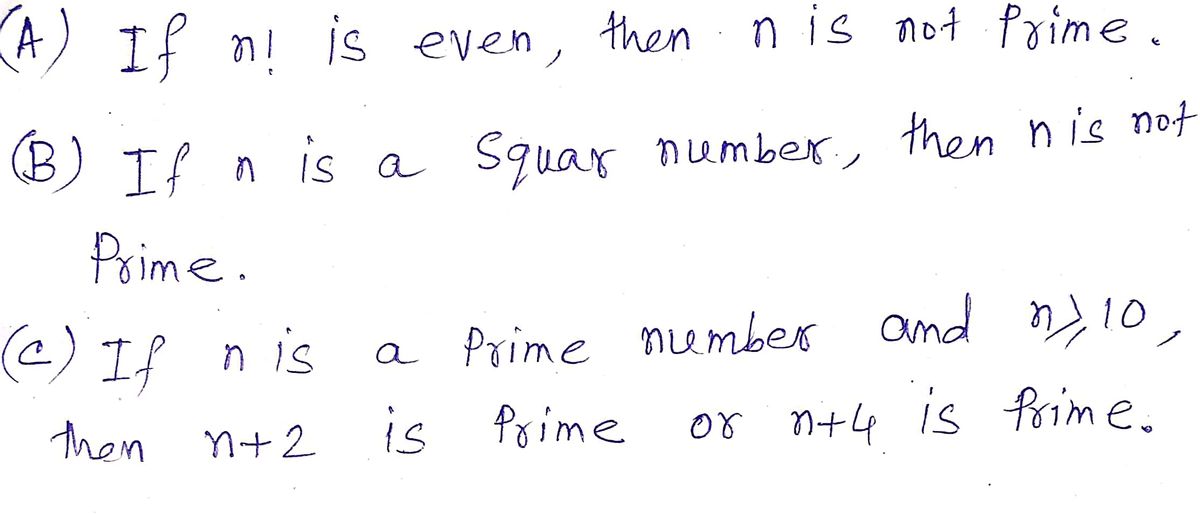 (A) If n! is even, then n is not Prime.
(B) If n is a Squar number, then n is not
Prime.
(C) If n is a Prime number and n⩾10,
then n+2 is Prime or n+4 is Prime.